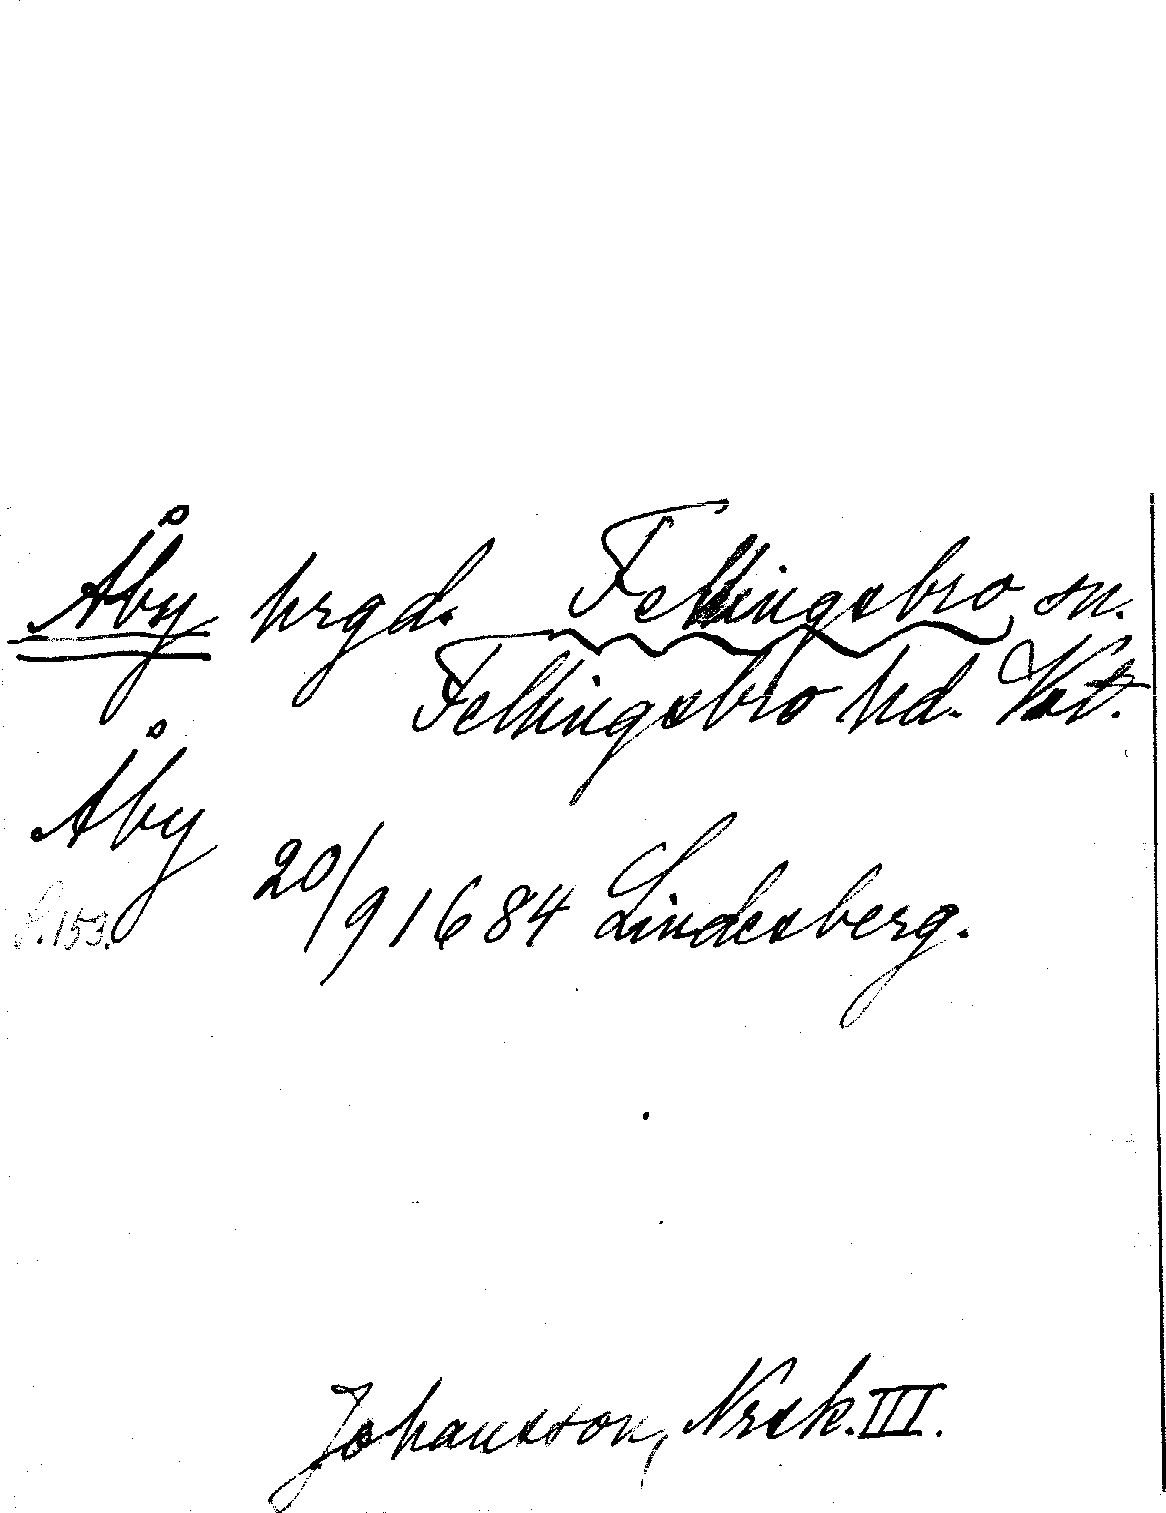 Åby hrgd. Fellingsbro sn.
Fellingsbro hd. Vst.
Åby
20/9 1684 Lindesberg.
s. 153.
Johansson, Nrsk. III.